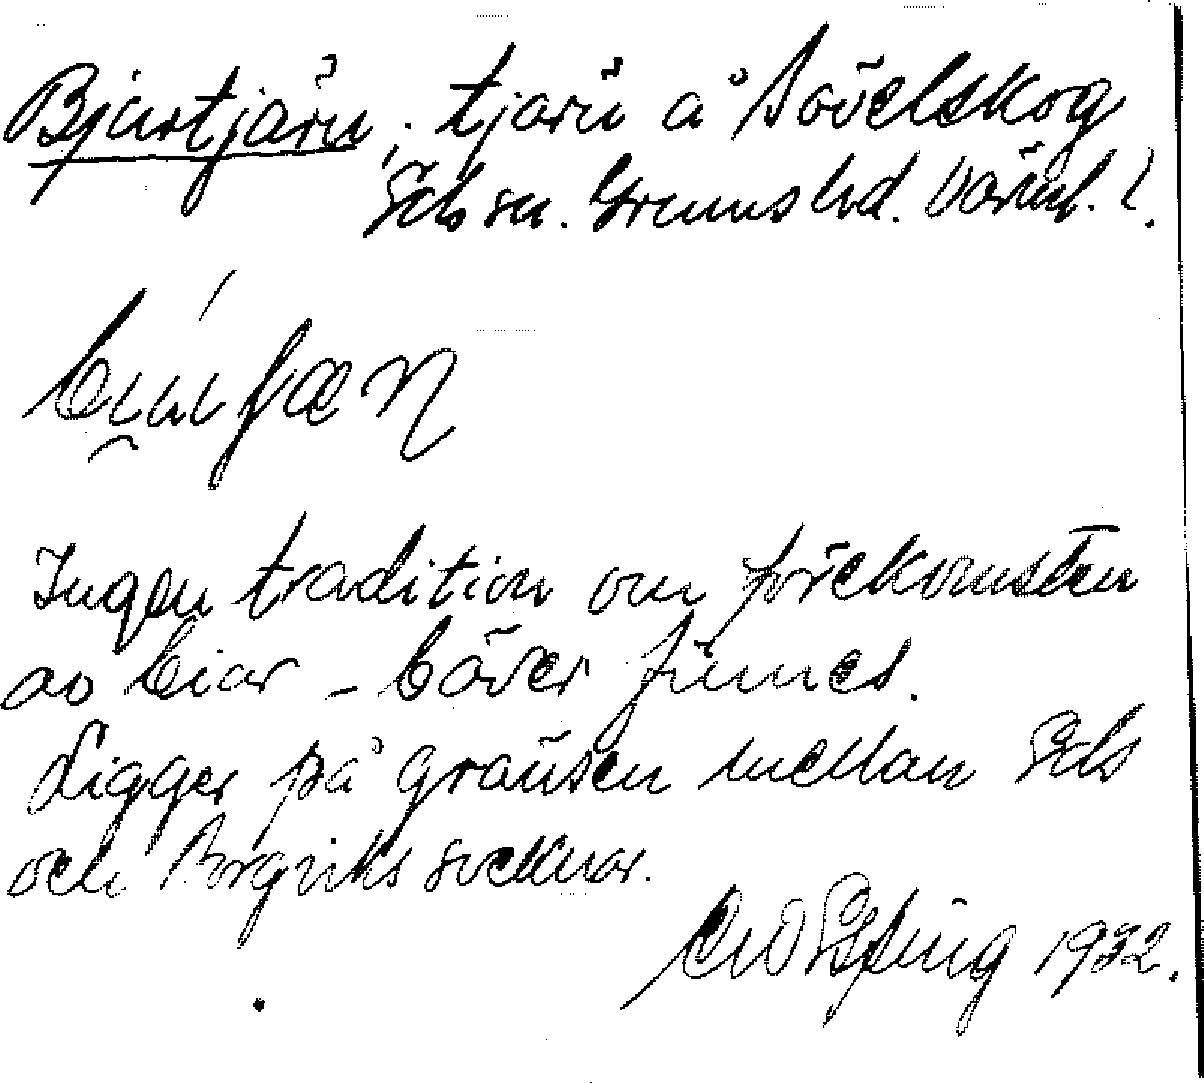 Bjurtjärn, tjärn å Sävelskog
Eds sn. Grums hd. Värml. l.
Ingen tradition om förekomsten
av biar - bäver finnes.
Ligger på gränsen mellan Eds
och Borgviks socknar.
1932.